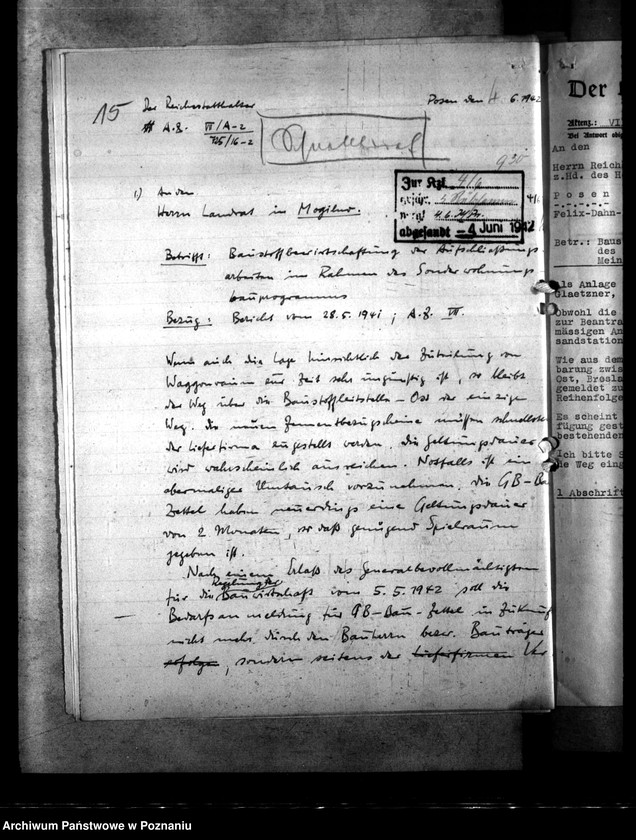 15
Der Reichsstatthalter
Posen den 4. 6. 1942
A.Z. VII/A-2
725/16-2
Schnellbrief
Zur Kzl. 4/6
4.6.
abgesandt - 4. Juni 1942
1) An den
Herrn Landrat in Mogilno.
Betrifft: Baustoffbewirtschaftung der Aufschließungs
arbeiten im Rahmen des Sonderwohnungs
bauprogramms
Bezug: Bericht vom 28.5.1941; A.Z. VII.
Wenn auch die Lage hinsichtlich der Zuteilung von
Waggonraum zur Zeit sehr ungünstig ist, so bleibt
der Weg über die Baustoffleitstelle-Ost der einzige
Weg. Die neuen Zementbezugscheine müssen schnellstens
der Lieferfirma zugestellt werden. Die Geltungsdauer
wird wahrscheinlich ausreichen. Notfalls ist ein
abermaliger Umtausch vorzunehmen. Die GB-Bau
Zettel haben neuerdings eine Geltungsdauer
von 2 Monaten, so daß genügend Spielraum
gegeben ist.
Nach einem Erlaß des Generalbevollmächtigten
für die Regelung der Bauwirtschaft vom 5.5.1942 soll die
Bedarfsanmeldung für GB-Bau-Zettel in Zukunft
nicht mehr durch den Bauherrn bezw. Bauträger
erfolgen, sondern seitens der Lieferfirmen Ver
Der
Aktenz.: VI
Bei Antwort obig
An den
Herrn Reich
z.Hd. des H
Posen
Felix-Dahn-
Betr.: Baus
des
Mein
Als Anlage
Glaetzner,
Obwohl die
zur Beantra
mässigen An
sandstation
Wie aus dem
barung zwis
Ost, Bresla
gemeldet zu
Reihenfolge
Es scheint
fügung gest
bestehenden
Ich bitte S
1 Abschrift
Archiwum Państwowe w Poznaniu